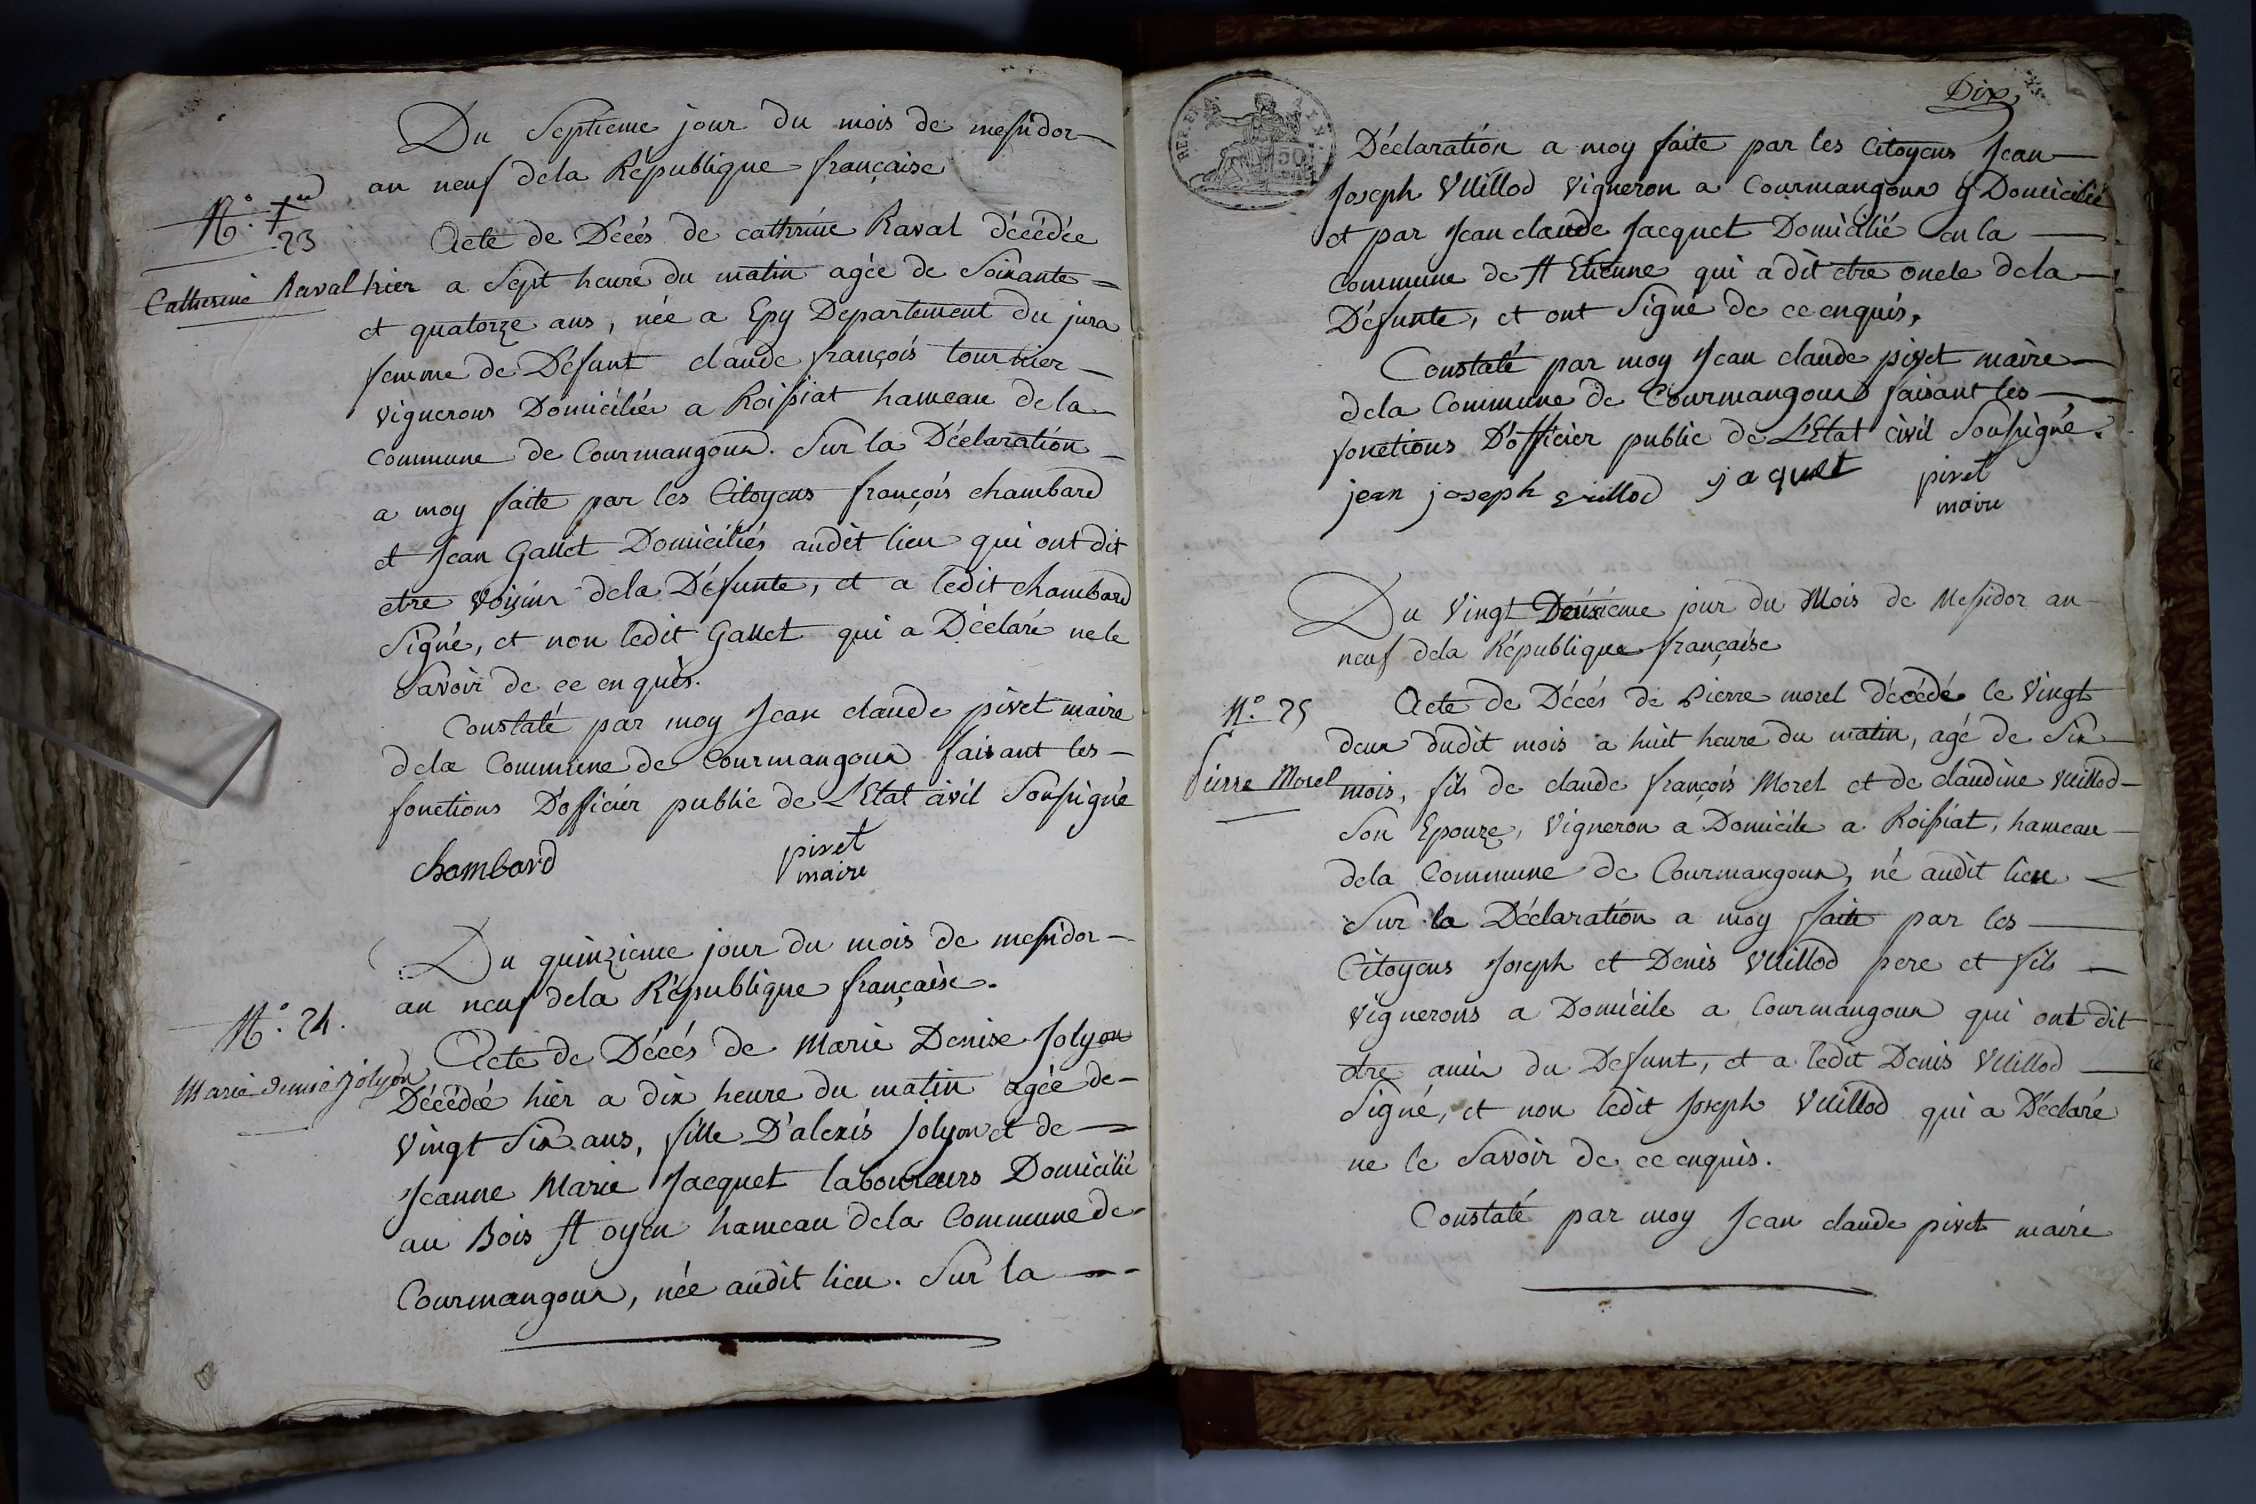 Du Septieme jour du mois de messidor
an neuf dela République française
N.° 23
Catherine Raval
Acte de Décés de cathrine Raval décédée
hier a Sept heure du matin agée de Soixante
et quatorze ans, née a Epy Departement du jura
femme de Défunt claude françois tournier
vignerons Domiciliée a Roissiat hameau dela
commune de Courmangoux. Sur la Déclaration
a moy faite par les Citoyens françois chambard
et Jean Gallet Domiciliés audit lieu qui ont dit
etre voisins dela Défunte, et a ledit chambard
Signé, et non ledit Gallet qui a Déclaré ne le
Savoir de ce enquis.
Constaté par moy Jean claude pivet maire
dela Commune de Courmangoux faisant les
fonctions D'officier public de L'Etat civil Soussigné
chambard pivet
maire
Du quinzieme jour du mois de messidor
an neuf dela République française.
N.° 24.
Marie denise Jolyon
Acte de Décés de Marie Denise Jolyon
Décédée hier a dix heure du matin agée de
vingt Six ans, fille D'alexis Jolyon et de
Jeanne Marie Jacquet laboureurs Domicilié
au Bois St oyen hameau dela Commune de
Courmangoux, née audit lieu. Sur la
Dix
REP. FRA.
50
Déclaration a moy faite par les Citoyens Jean
Joseph Vuillod Vigneron a Courmangoux y Domicilié
et par Jean claude Jacquet Domicilié en la
Commune de St Etienne qui a dit etre oncle dela
Défunte, et ont Signé de ce enquis,
Constaté par moy Jean claude pivet maire
dela Commune de Courmangoux faisant les
fonctions D'officier public de L'Etat civil Soussigné.
jean joseph vuillod jaquet pivet
maire
Du vingt Deuxieme jour du Mois de Messidor an
neuf dela République française
N.° 25
Pierre Morel
Acte de Décés de Pierre morel décédé le vingt
deux dudit mois a huit heure du matin, agé de Six
mois, fils de claude françois Morel et de claudine vuillod
Son Epouze, Vigneron a Domicile a Roissiat, hameau
dela Commune de Courmangoux, né audit lieu
Sur la Déclaration a moy faite par les
Citoyens Joseph et Denis Vuillod pere et fils
vignerons a Domicile a Courmangoux qui ont dit
etre amis du Defunt, et a ledit Denis Vuillod
Signé, et non ledit Joseph Vuillod qui a Déclaré
ne le Savoir de ce enquis.
Constaté par moy Jean claude pivet maire